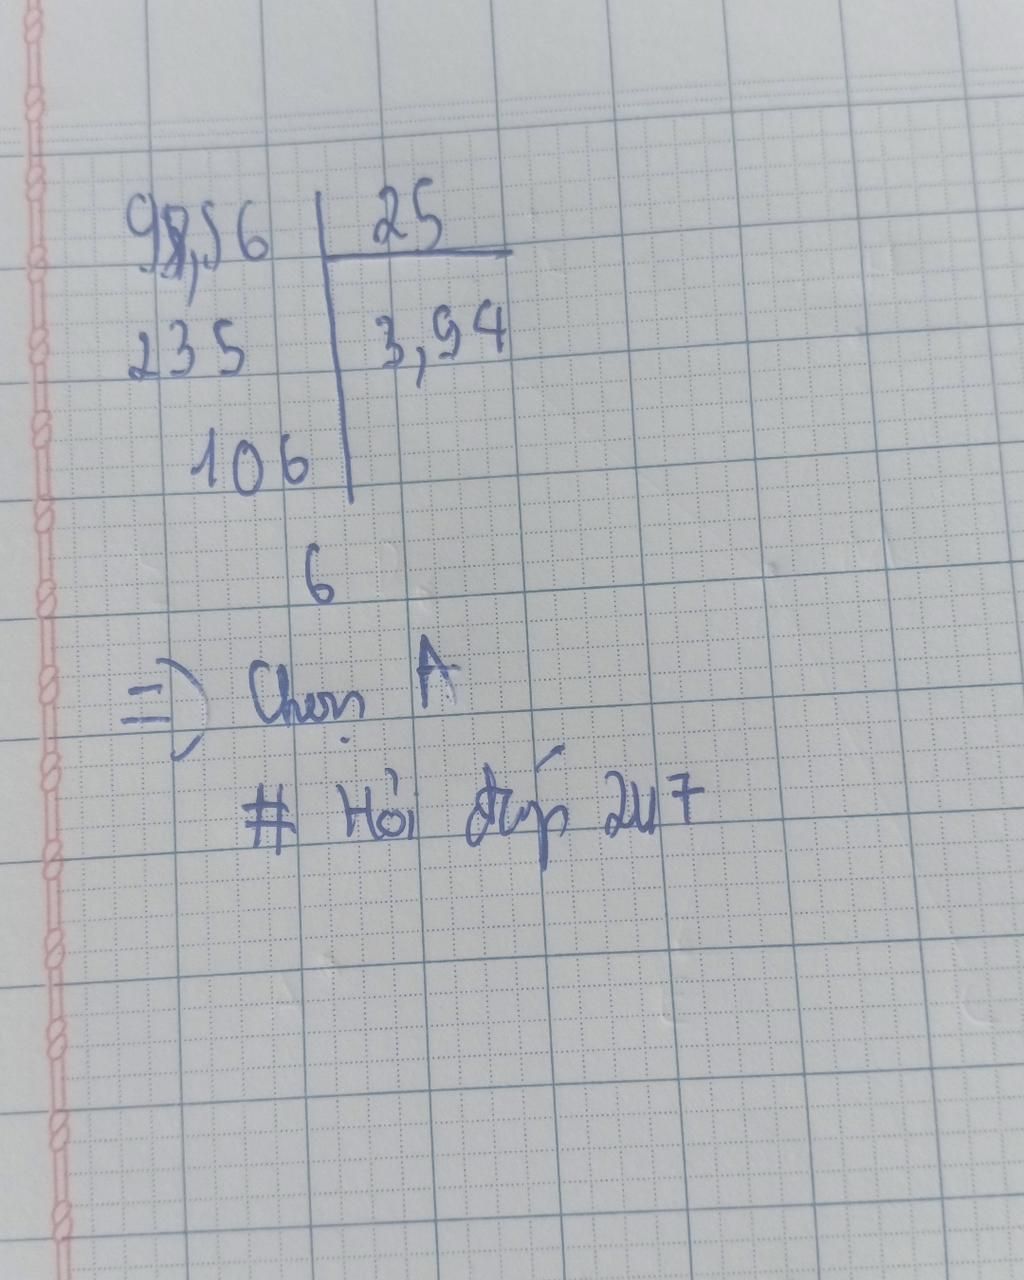 98,56 25
235 3,94
106
6
=) Chọn A
# Hỏi đáp 247